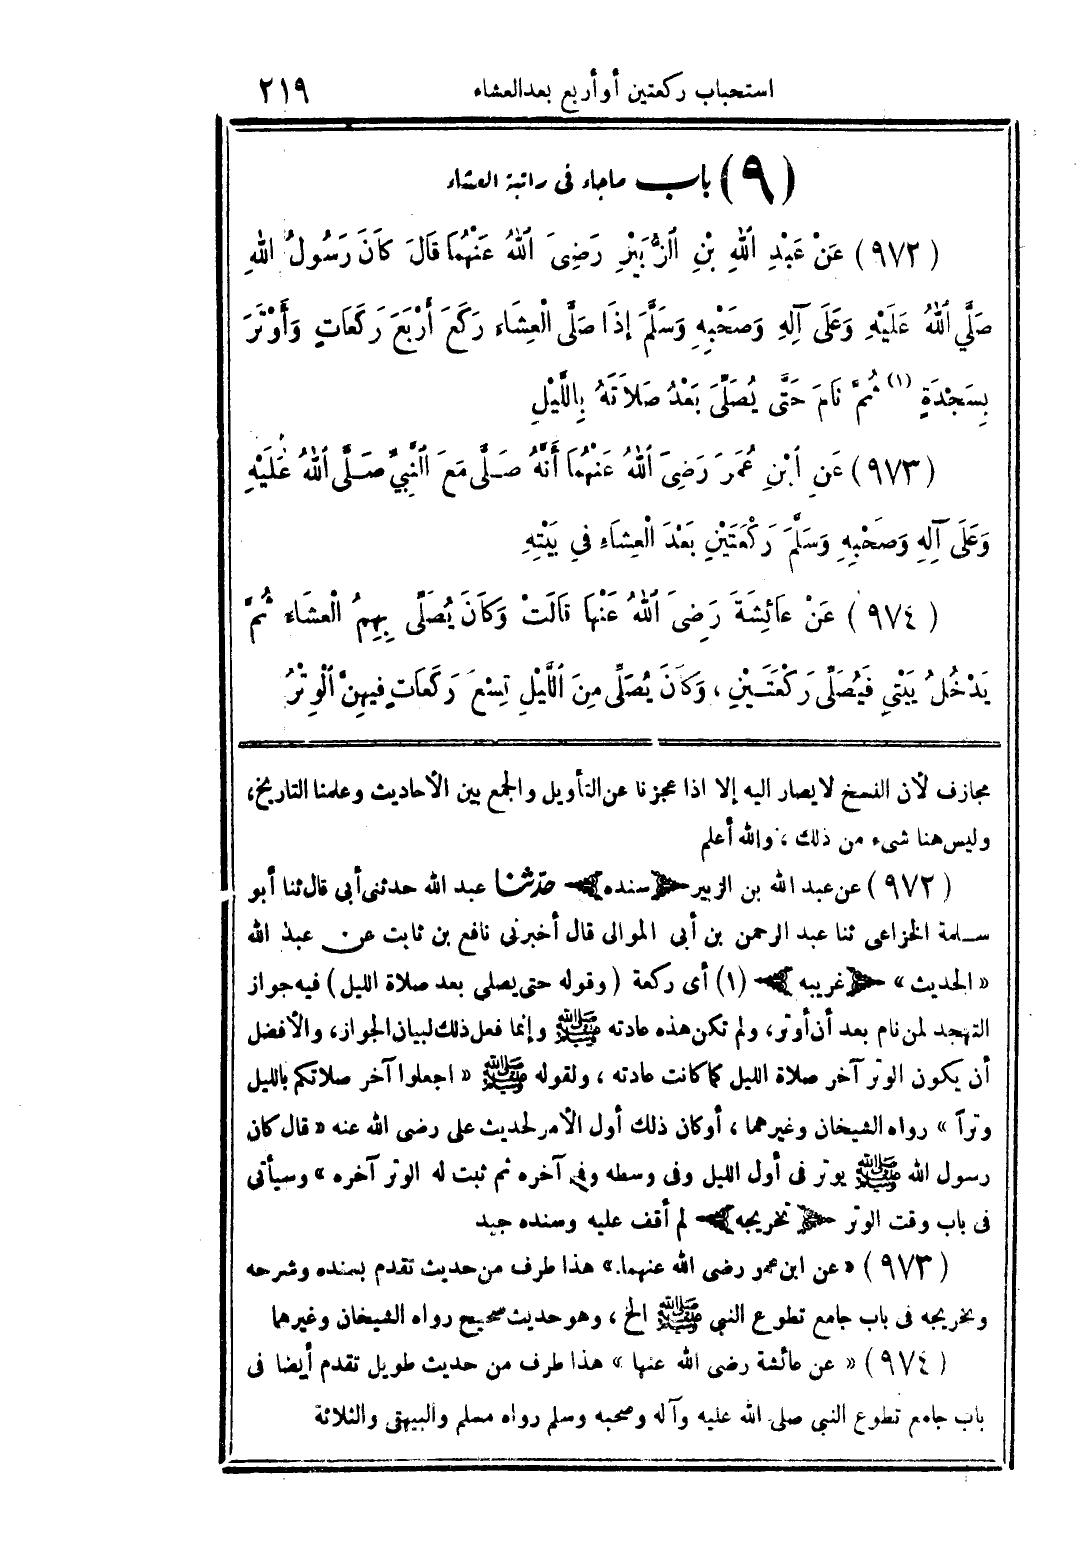 استحباب ركعتين أو أربع بعد العشاء ٢١٩
(٩) باب ماجاء فى راتبة العشاء
(٩٧٢) عَنْ عَبْدِ اللهِ بْنِ الزُّبَيْرِ رَضِىَ اللهُ عَنْهُمَا قَالَ كَانَ رَسُولُ اللهِ
صَلَّي اللهُ عَلَيْهِ وَعَلَى آلِهِ وَصَحْبِهِ وَسَلَّمَ إِذَا صَلَّى الْعِشَاءَ رَكَعَ أَرْبَعَ رَكَعَاتٍ وَأَوْتَرَ
بِسَجْدَةٍ (١) ثُمَّ نَامَ حَتَّى يُصَلِّىَ بَعْدُ صَلاَتَهُ بِاللَّيْلِ
(٩٧٣) عَنِ ابْنِ عُمَرَ رَضِىَ اللهُ عَنْهُمَا أَنَّهُ صَلَّى مَعَ النَّبِيِّ صَلَّى اللهُ عَلَيْهِ
وَعَلَى آلِهِ وَصَحْبِهِ وَسَلَّمَ رَكْعَتَيْنِ بَعْدَ الْعِشَاءِ فِي بَيْتِهِ
(٩٧٤) عَنْ عَائِشَةَ رَضِىَ اللهُ عَنْهَا قَالَتْ وَكَانَ يُصَلِّى بِهِمُ الْعِشَاءَ ثُمَّ
يَدْخُلُ بَيْتِي فَيُصَلِّى رَكْعَتَيْنِ ، وَكَانَ يُصَلِّى مِنَ اللَّيْلِ تِسْعَ رَكَعَاتٍ فِيهِنَّ الْوِتْرُ
مجازف لأن النسخ لا يصار اليه إلا اذا عجزنا عن التأويل والجمع بين الأحاديث وعلمنا التاريخ،
وليس هنا شىء من ذلك ، والله أعلم
(٩٧٢) عن عبد الله بن الزبير ﴿سنده﴾ حدّثنا عبد الله حدثنى أبى قال ثنا أبو
سلمة الخزاعى ثنا عبد الرحمن بن أبى الموالى قال أخبرنى نافع بن ثابت عن عبد الله
« الحديث » ﴿غريبه﴾ (١) أى ركعة (وقوله حتى يصلى بعد صلاة الليل) فيه جواز
التهجد لمن نام بعد أن أوتر، ولم تكن هذه عادته ﷺ وإنما فعل ذلك لبيان الجواز، والأفضل
أن يكون الوتر آخر صلاة الليل كما كانت عادته ، ولقوله ﷺ « اجعلوا آخر صلاتكم بالليل
وتراً » رواه الشيخان وغيرهما ، أو كان ذلك أول الأمر لحديث على رضى الله عنه « قال كان
رسول الله ﷺ يوتر فى أول الليل وفى وسطه وفى آخره ثم ثبت له الوتر آخره » وسيأتى
فى باب وقت الوتر ﴿تخريجه﴾ لم أقف عليه وسنده جيد
(٩٧٣) « عن ابن عمر رضى الله عنهما » هذا طرف من حديث تقدم بسنده وشرحه
وتخريجه فى باب جامع تطوع النبي ﷺ الخ ، وهو حديث صحيح رواه الشيخان وغيرهما
(٩٧٤) « عن عائشة رضى الله عنها » هذا طرف من حديث طويل تقدم أيضا فى
باب جامع تطوع النبي صلى الله عليه وآله وصحبه وسلم رواه مسلم والبيهقى والثلاثة